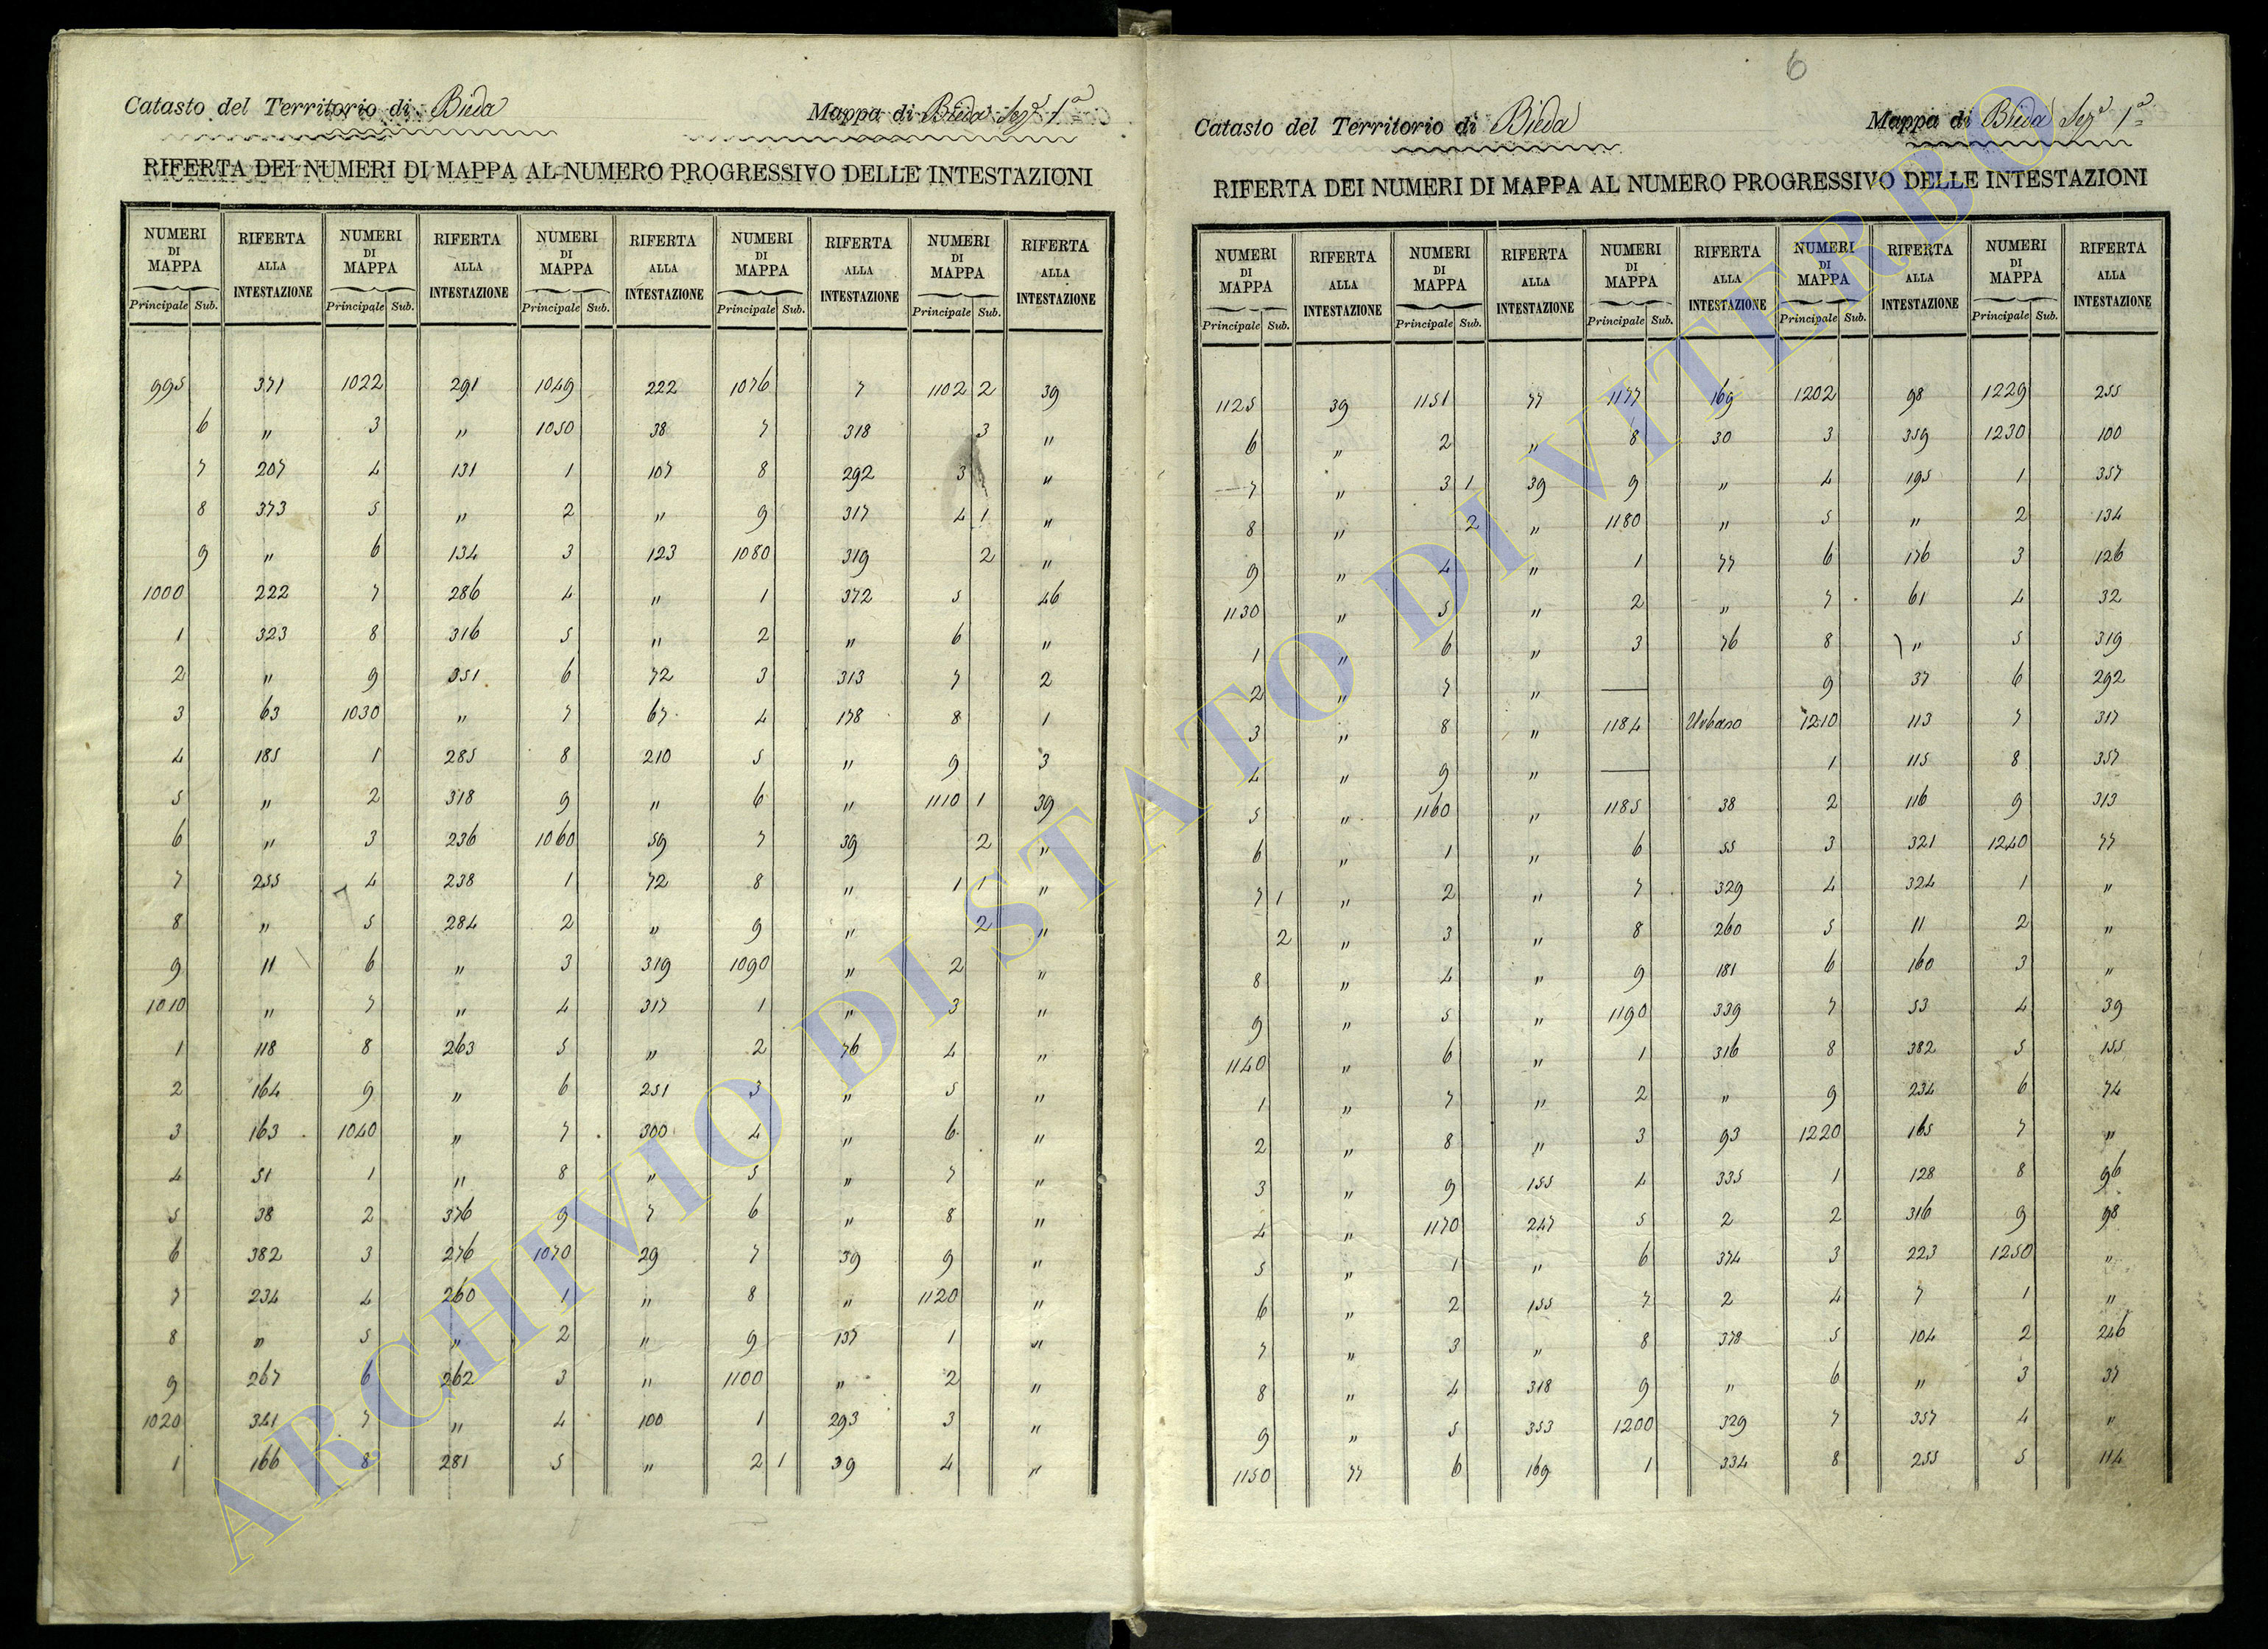 6
Catasto del Territorio di Bieda Mappa di Bieda Sez.e 1a
RIFERTA DEI NUMERI DI MAPPA AL NUMERO PROGRESSIVO DELLE INTESTAZIONI
NUMERI DI MAPPA RIFERTA ALLA INTESTAZIONE NUMERI DI MAPPA RIFERTA ALLA INTESTAZIONE NUMERI DI MAPPA RIFERTA ALLA INTESTAZIONE NUMERI DI MAPPA RIFERTA ALLA INTESTAZIONE NUMERI DI MAPPA RIFERTA ALLA INTESTAZIONE
Principale Sub. Principale Sub. Principale Sub. Principale Sub. Principale Sub.
995 371 1022 291 1049 222 1076 7 1102 2 39
6 " 3 " 1050 38 7 318 3 "
7 207 4 131 1 107 8 292 3 "
8 373 5 " 2 " 9 317 4 1 "
9 " 6 134 3 123 1080 319 2 "
1000 222 7 286 4 " 1 372 5 46
1 323 8 316 5 " 2 " 6 "
2 " 9 351 6 72 3 313 7 2
3 63 1030 " 7 67 4 178 8 1
4 185 1 285 8 210 5 " 9 3
5 " 2 318 9 " 6 " 1110 1 39
6 " 3 236 1060 59 7 39 2 "
7 255 4 238 1 72 8 " 1 1 "
8 " 5 284 2 " 9 " 2 "
9 11 6 " 3 319 1090 " 2 "
1010 " 7 " 4 317 1 " 3 "
1 118 8 263 5 " 2 76 4 "
2 164 9 " 6 251 3 " 5 "
3 163 1040 " 7 300 4 " 6 "
4 51 1 " 8 " 5 " 7 "
5 38 2 376 9 7 6 " 8 "
6 382 3 276 1070 29 7 39 9 "
7 234 4 260 1 " 8 " 1120 "
8 " 5 " 2 " 9 137 1 "
9 267 6 262 3 " 1100 " 2 "
1020 341 7 " 4 100 1 293 3 "
1 166 8 281 5 " 2 1 39 4 "
Catasto del Territorio di Bieda Mappa di Bieda Sez.e 1a
RIFERTA DEI NUMERI DI MAPPA AL NUMERO PROGRESSIVO DELLE INTESTAZIONI
NUMERI DI MAPPA RIFERTA ALLA INTESTAZIONE NUMERI DI MAPPA RIFERTA ALLA INTESTAZIONE NUMERI DI MAPPA RIFERTA ALLA INTESTAZIONE NUMERI DI MAPPA RIFERTA ALLA INTESTAZIONE NUMERI DI MAPPA RIFERTA ALLA INTESTAZIONE
Principale Sub. Principale Sub. Principale Sub. Principale Sub. Principale Sub.
1125 39 1151 77 1177 169 1202 98 1229 255
6 " 2 " 8 30 3 359 1230 100
7 " 3 1 39 9 " 4 195 1 357
8 " 2 " 1180 " 5 " 2 134
9 " 4 " 1 77 6 176 3 126
1130 " 5 " 2 " 7 61 4 32
1 " 6 " 3 76 8 " 5 319
2 " 7 " — 9 37 6 292
3 " 8 " 1184 Urbano 1210 113 7 317
4 " 9 " — 1 115 8 357
5 " 1160 " 1185 38 2 116 9 313
6 " 1 " 6 55 3 321 1240 77
7 1 " 2 " 7 329 4 324 1 "
2 " 3 " 8 260 5 11 2 "
8 " 4 " 9 181 6 160 3 "
9 " 5 " 1190 339 7 53 4 39
1140 " 6 " 1 316 8 382 5 155
1 " 7 " 2 " 9 234 6 74
2 " 8 " 3 93 1220 165 7 "
3 " 9 155 4 335 1 128 8 96
4 " 1170 247 5 2 2 316 9 98
5 " 1 " 6 374 3 223 1250 "
6 " 2 155 7 2 4 7 1 "
7 " 3 " 8 378 5 104 2 246
8 " 4 318 9 " 6 " 3 37
9 " 5 353 1200 329 7 357 4 "
1150 77 6 169 1 334 8 255 5 114
ARCHIVIO DI STATO DI VITERBO